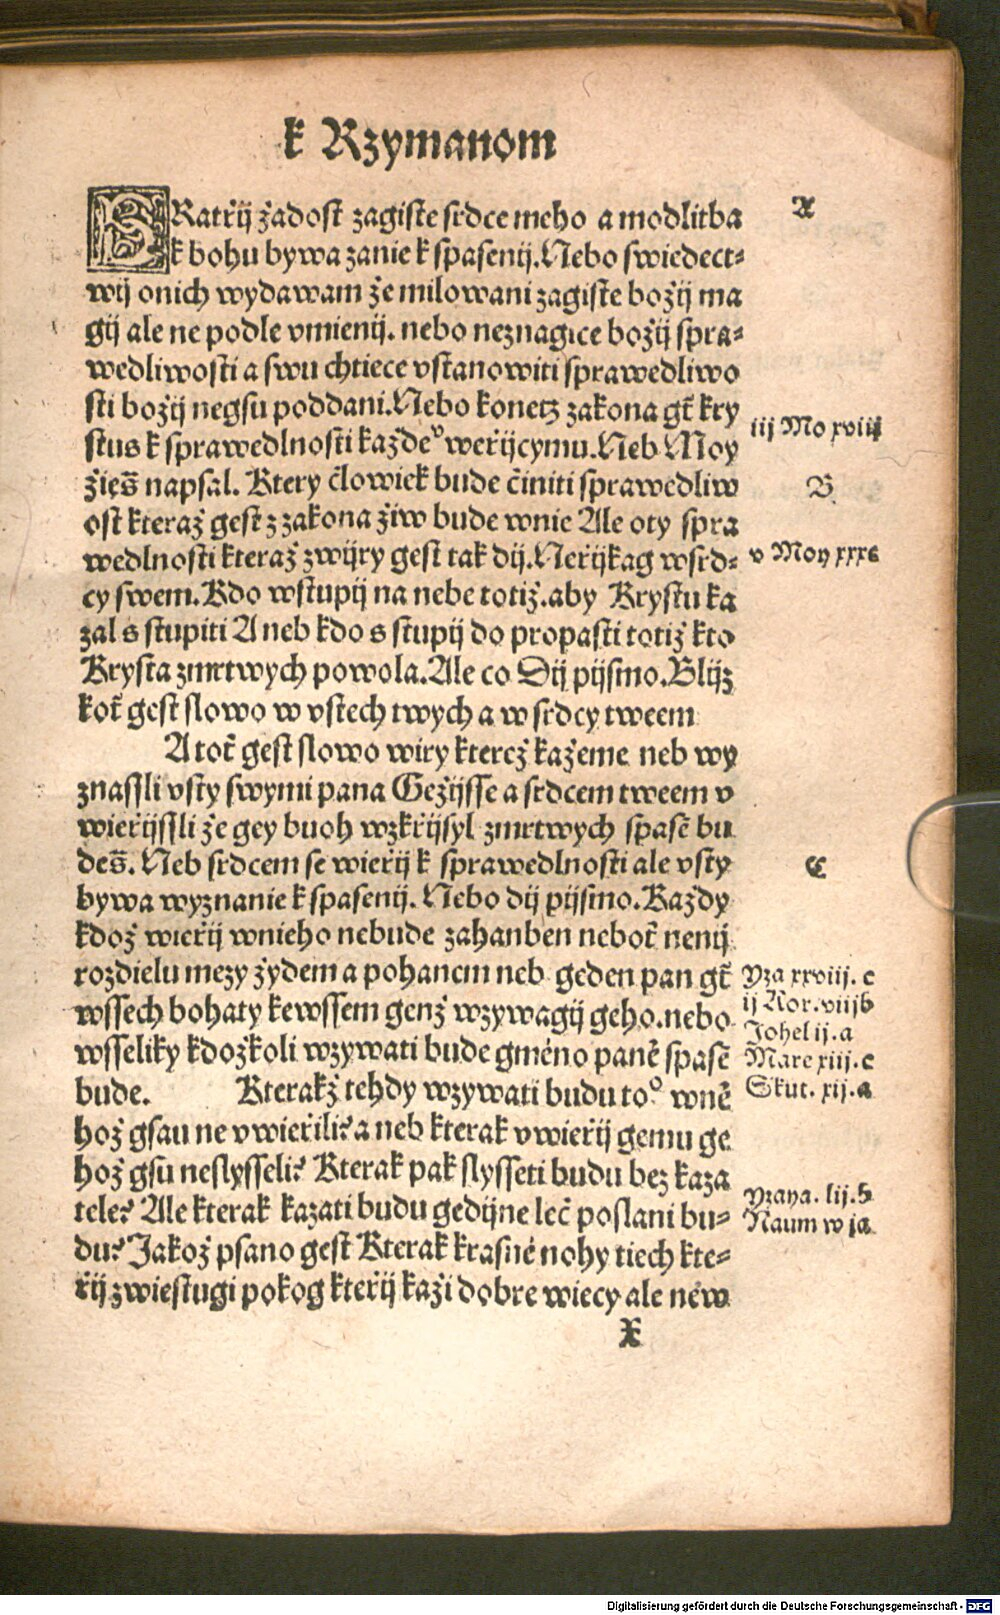 k Rzymanom
BRatřij žadost zagiste srdce meho a modlitba
A
k bohu bywa zanie k spasenij. Nebo swiedect⸗
wij onich wydawam že milowani zagiste božij ma
gij ale ne podle vmienij. nebo neznagice božij spra⸗
wedliwosti a swu chtiece vstanowiti sprawedliwo
sti božij negsu poddani. Nebo konetz zakona gt̃ kry
iij Mo xviij
stus k sprawedlnosti každeᵒ weřijcymu. Neb Moy
žies̃ napsal. Ktery člowiek bude činiti sprawedliw
B
ost kteraž gest z zakona žiw bude wnie Ale oty spra
wedlnosti kteraž zwijry gest tak dij. Neřijkag wsrd⸗
v Moy xxxc
cy swem. Kdo wstupij na nebe totiž. aby Krystu ka
zal s stupiti A neb kdo s stupij do propasti totiž kto
Krysta zmrtwych powola. Ale co Dij pijsmo. Blijz
kot̃ gest slowo w vstech twych a w srdcy tweem
A tot̃ gest slowo wiry kterež kažeme neb wy
znassli vsty swymi pana Gežijsse a srdcem tweem v
wieřijssli že gey buoh wzkřijsyl zmrtwych spasẽ bu
des̃. Neb srdcem se wieřij k sprawedlnosti ale vsty
C
bywa wyznanie k spasenij. Nebo dij pijsmo. Každy
kdož wieřij wnieho nebude zahanben nebot̃ nenij
rozdielu mezy žydem a pohanem neb geden pan gt̃
Yza xxviij. c
wssech bohaty kewssem genž wzywagij geho. nebo
ij Kor. viijb
wsseliky kdožkoli wzywati bude gméno panẽ spasẽ
Johel ij. a
Mare xiij. c
bude. Kterakž tehdy wzywati budu toᵒ wnẽ
Skut. xij. a
hož gsau ne vwieřili? a neb kterak vwieřij gemu ge
hož gsu neslysseli? Kterak pak slysseti budu bez kaza
tele? Ale kterak kazati budu gedijne leč poslani bu⸗
Yzaya. lij. b
Naum w ja
du? Jakož psano gest Kterak krasné nohy tiech kte⸗
řij zwiestugi pokog kteřij kaži dobre wiecy ale néw
X
Digitalisierung gefördert durch die Deutsche Forschungsgemeinschaft - DFG